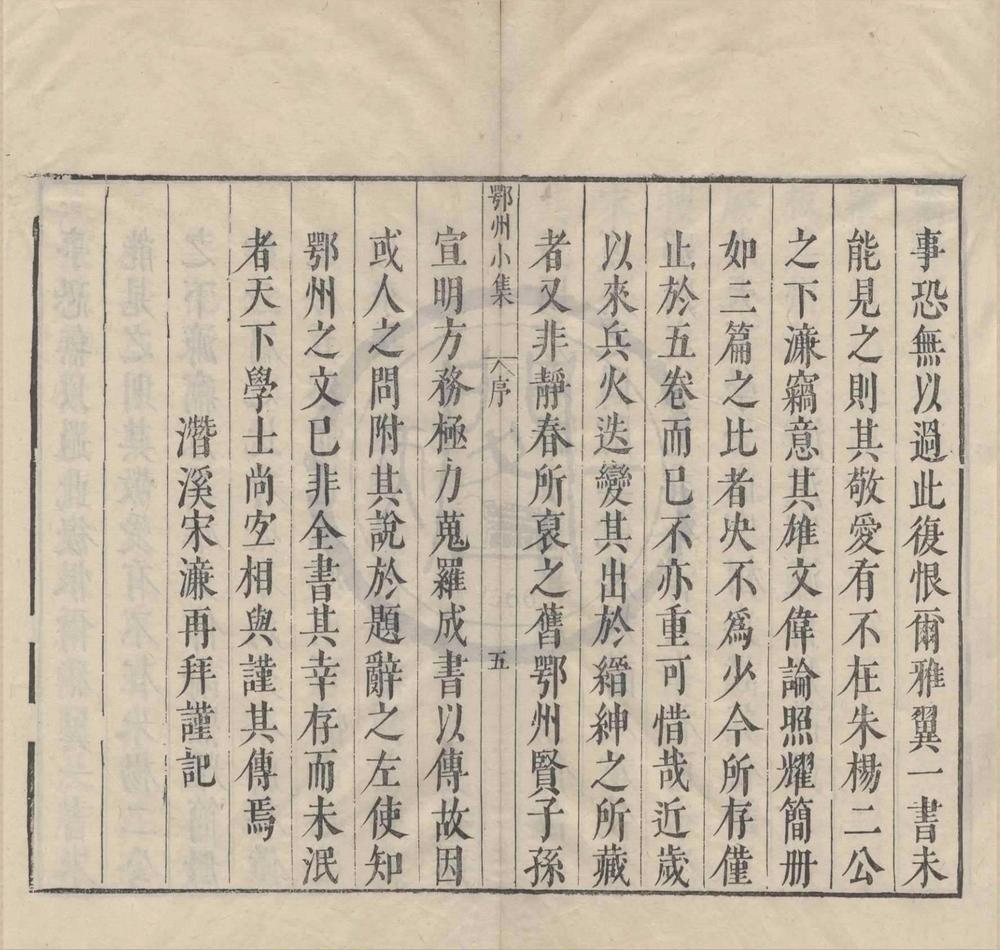 事恐無以過此復恨爾雅翼一書未
能見之則其敬愛有不在朱楊二公
之下濂竊意其雄文偉論照耀簡册
如三篇之比者决不爲少今所存僅
止於五卷而已不亦重可惜哉近歲
以來兵火迭變其出於縉紳之所藏
者又非靜春所裒之舊鄂州賢子孫
鄂州小集 序 五
宣明方務極力蒐羅成書以傳故因
或人之問附其說於題辭之左使知
鄂州之文已非全書其幸存而未泯
者天下學士尚宜相與謹其傳焉
潛溪宋濂再拜謹記